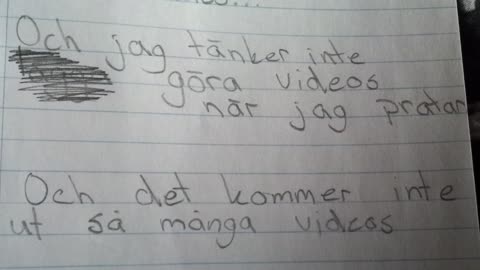 Och jag tänker inte
göra videos
när jag pratar
Och det kommer inte
ut så många videos